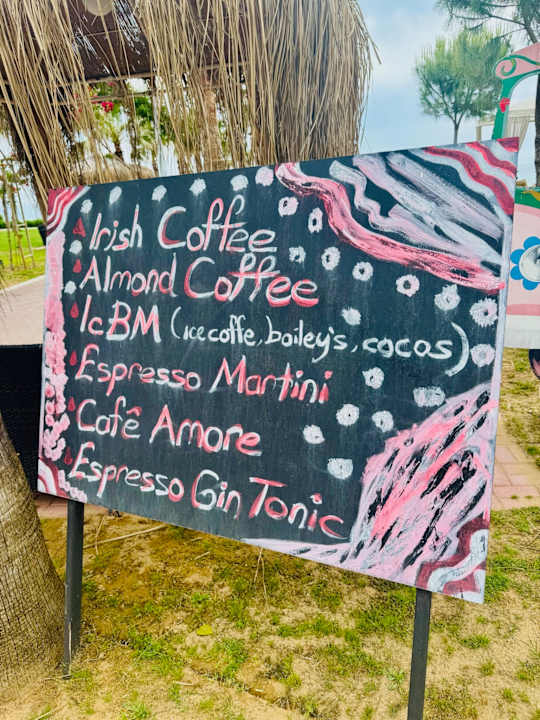 Irish Coffee
Almond Coffee
IcBM (ice coffe, boiley's, cocos)
Espresso Martini
Cafê Amore
Espresso Gin Tonic